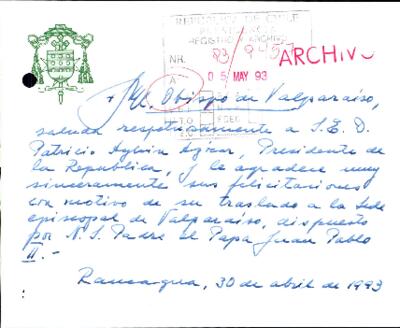 REPUBLICA DE CHILE
REGISTRO Y ARCHIVO
NR. 93/9457
ARCHIVO
A
05 MAY 93
+ El Obispo de Valparaíso,
saluda respetuosamente a S.E. D.
Patricio Aylwin Azócar, Presidente de
la República, y le agradece muy
sinceramente sus felicitaciones
con motivo de su traslado a la Sede
episcopal de Valparaíso, dispuesto
por N. S. Padre el Papa Juan Pablo
II.-
Rancagua, 30 de abril de 1993